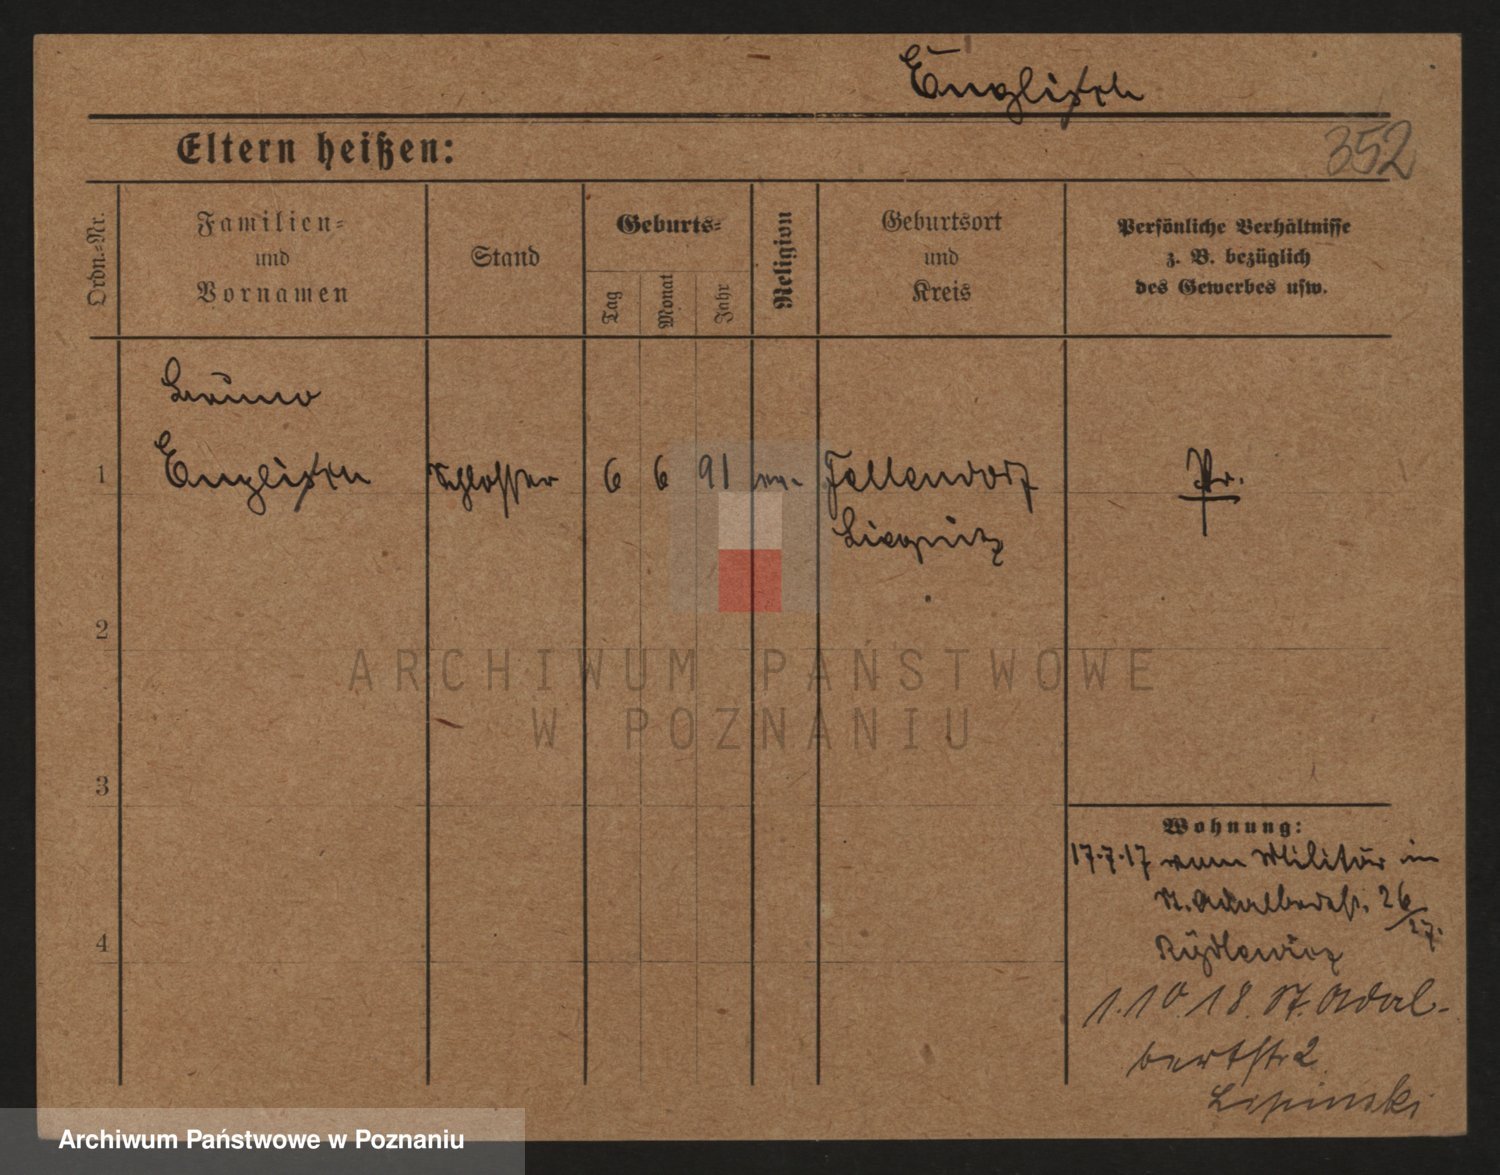 Englisch
352
Eltern heißen:
Ordn.-Nr.
Familien-
und
Vornamen
Stand
Geburts-
Tag
Monat
Jahr
Religion
Geburtsort
und
Kreis
Persönliche Verhältnisse
z. B. bezüglich
des Gewerbes usw.
Bruno
1 Englisch Schlosser 6 6 91 Fellendorf Pr.
Liegnitz
2
3
4
Wohnung:
17.7.17 vom Militär in
St. Adalbertstr. 26/27.
Rydlewicz
1.10.18. St. Adal-
bertstr 2
Lipinski
ARCHIWUM PAŃSTWOWE
W POZNANIU
Archiwum Państwowe w Poznaniu